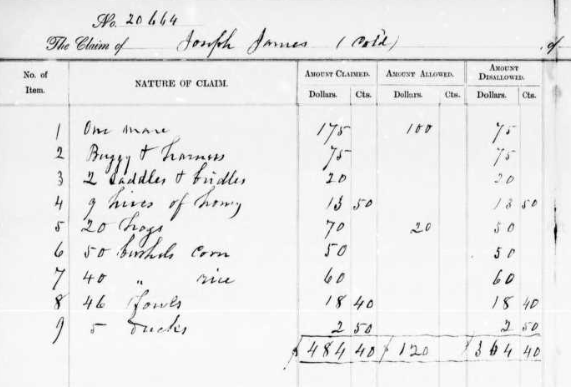 No. 20664
The Claim of Joseph James (Col'd) of
No. of Item. NATURE OF CLAIM. AMOUNT CLAIMED. AMOUNT ALLOWED. AMOUNT DISALLOWED.
Dollars. Cts. Dollars. Cts. Dollars. Cts.
1 One mare 175 100 75
2 Buggy & harness 75 75
3 2 Saddles & bridles 20 20
4 9 hives of honey 13 50 13 50
5 20 hogs 70 20 50
6 50 bushels corn 50 50
7 40 " rice 60 60
8 46 fowls 18 40 18 40
9 5 ducks 2 50 2 50
$484 40 $120 $364 40